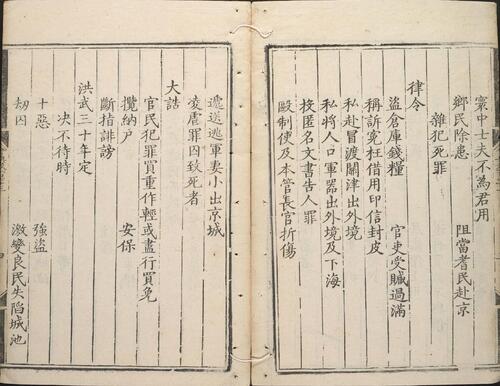 寰中士夫不為君用
鄉民除患　阻當耆民赴京
雜犯死罪
律令
盜倉庫錢糧　官吏受贓過滿
稱訴冤枉借用印信封皮
私赴冒渡關津出外境
私將人口軍器出外境及下海
投匿名文書告人罪
毆制使及本管長官折傷
遞送逃軍妻小出京城
凌虐罪囚致死者
大誥
官民犯罪買重作輕或盡行買免
攬納户　安保
斷指誹謗
洪武三十年定
决不待時
十惡　強盜
劫囚　激變良民失陷城池